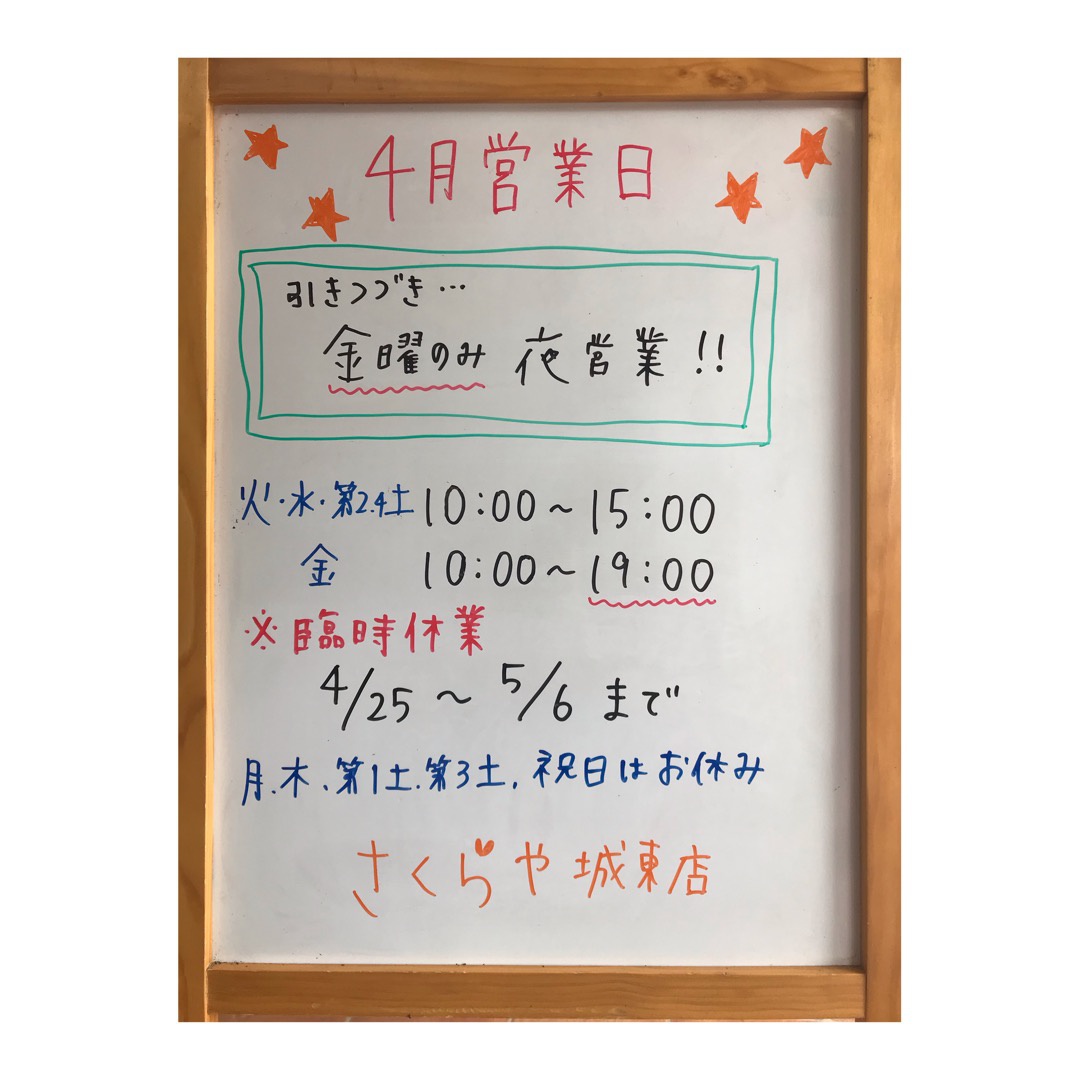 4月営業日
引きつづき…
金曜のみ 夜営業!!
火・水・第2.4土 10:00～15:00
金 10:00～19:00
※臨時休業
4/25～5/6まで
月.木.第1土.第3土.祝日はお休み
さくらや城東店